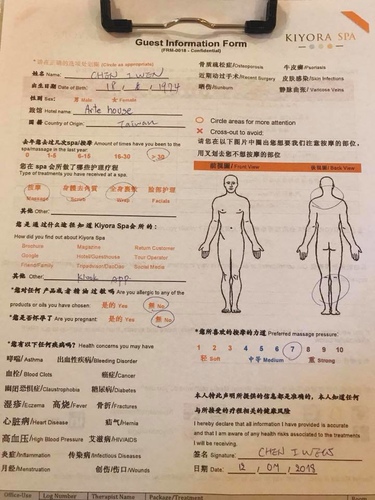 Guest Information Form
(FRM-0018 - Confidential)
KIYORA SPA
(Circle as appropriate)
姓名 Name: CHEN I WEN
出生日期 Date of Birth: 18, 1974
性别 Sex: 男 Male 女 Female
Hotel name Arte house
国籍 Country of Origin: Taiwan
骨质疏松症/Osteoporosis
近期动过手术/Recent Surgery
晒伤/Sunburn
牛皮癣/Psoriasis
皮肤感染/Skin Infections
静脉曲张/ Varicose Veins
去年您去过几次spa/按摩 Amount of times have you been to the
spa/massage in the last year:
0 1-5 6-15 16-30 >30
您在 spa 会所做了哪些护理疗程
Type of treatments you have received at a spa.
按摩 身體去角質 全身裹敷 脸部护理
Massage Scrub Wrap Facials
其他 Other:
您是通过什么途径知道 Kiyora Spa会所的:
How did you find out about Kiyora Spa
Brochure Magazine Return Customer
Google Hotel/Guesthouse Tour Operator
Friend/Family TripAdvisor/DaoDao Social Media
其他 Other: Klook App
您对任何产品或者精油过敏吗 Are you allergic to any of the
products or oils you have chosen: 是的 Yes 無 No
您是否怀孕了 Are you pregnant: 是的 Yes 無 No
您有以下任何疾病吗? Health concerns you may have
哮喘/ Asthma 出血性疾病/Bleeding Disorder
血栓/ Blood Clots 癌症/Cancer
幽闭恐惧症/Claustrophobia 糖尿病/Diabetes
湿疹/Eczema 高烧/Fever 骨折/Fractures
心脏病/Heart Disease 疝气/Hernia
高血压/High Blood Pressure 艾滋病/HIV/AIDS
炎症/Inflammation 传染病/Infectious Diseases
月经/Menstruation 创伤/伤口/Wounds
Circle areas for more attention
Cross-out to avoid:
请您在以下图片中圈出您想要我们注意按摩的部位,
用叉划去您不想按摩的部位
前视图/ Front View
后视图/ Back View
您所喜欢的按摩的力道 Preferred massage pressure:
1 2 3 4 5 6 7 8 9 10
轻 Soft 中等 Medium 重 Strong
本人特此声明所提供的信息都是准确的, 本人知道任何
与所接受的疗程相关的健康风险
I hereby declare that all information I have provided is accurate
and that I am aware of any health risks associated to the treatments
I will be receiving.
签名 Signature: CHEN I WEN
日期 Date: 12, 07, 2018
Office-Use Log Number Therapist Name Package/Treatment